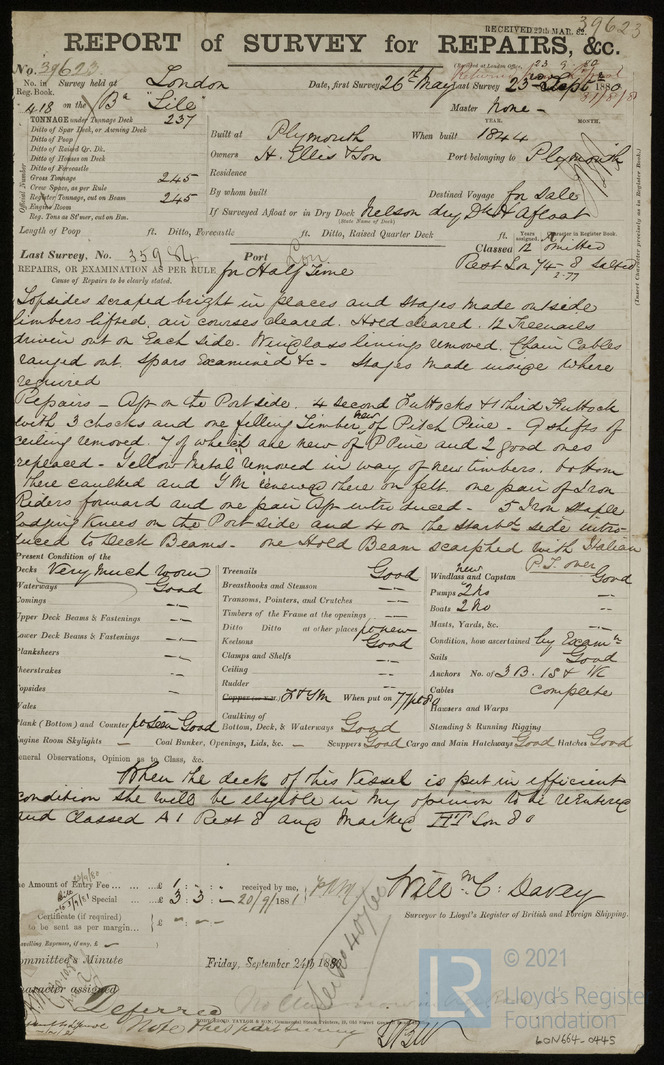 RECEIVED 29th MAR. 82.
39623
REPORT of SURVEY for REPAIRS, &c.
No. 39623
No. in Reg. Book. Survey held at London Date, first Survey 26th May Last Survey 23 Sept 1880
418 on the Bk "Lile" Master None -
TONNAGE under Tonnage Deck 237
Ditto of Spar Deck, or Awning Deck
Ditto of Poop
Ditto of Raised Qr. Dk.
Ditto of Houses on Deck
Ditto of Forecastle
Gross Tonnage 245
Crew Space, as per Rule
Register Tonnage, cut on Beam 245
Engine Room
Reg. Tons as St'mer, cut on Bm.
Official Number
YEAR. MONTH.
Built at Plymouth When built 1844
Owners H. Ellis & Son Port belonging to Plymouth
Residence
By whom built Destined Voyage for Sale
If Surveyed Afloat or in Dry Dock Nelson dry Dk & Afloat
(State Name of Dock)
Length of Poop ft. Ditto, Forecastle ft. Ditto, Raised Quarter Deck ft.
Years assigned. Character in Register Book.
Classed 12 A1 omitted
Rest Lon 74-8 Salted
2.77
(Insert Character precisely as in Register Book.)
Last Survey, No. 35984 Port Lon.
REPAIRS, OR EXAMINATION AS PER RULE for Half Time
Cause of Repairs to be clearly stated.
Topsides scraped bright in places and stages made outside
limbers lifted, air courses cleared. Hold cleared. 12 Treenails
driven out on Each side. Windlass linings removed. Chain Cables
ranged out. Spars Examined &c - Stages made inside where
required
Repairs - Aft on the Port side. 4 second Futtocks & 1 third Futtock
with 3 chocks and one filling Timber new of Pitch Pine - 9 shifts of
ceiling removed. 7 of which are new of P Pine and 2 good ones
replaced - Yellow Metal removed in way of new timbers, bottom
there caulked and YM renewed there on felt. one pair of Iron
Riders forward and one pair Aft introduced. - 5 Iron Staple
lodging knees on the Port side and 4 on the Starbd side intro-
duced to Deck Beams. - one Hold Beam scarphed with Italian
P. I. over
Present Condition of the
Decks Very much worn
Waterways Good
Comings --
Upper Deck Beams & Fastenings --
Lower Deck Beams & Fastenings --
Planksheers --
Sheerstrakes --
Topsides --
Wales --
Plank (Bottom) and Counter pt Seen Good
Engine Room Skylights -
Treenails Good
Breasthooks and Stemson --
Transoms, Pointers, and Crutches --
Timbers of the Frame at the openings --
Ditto Ditto at other places pt new
Keelsons Good
Clamps and Shelfs --
Ceiling --
Rudder --
Copper (or Y.M.) F & YM When put on 77 pt 80
Caulking of
Bottom, Deck, & Waterways Good
Coal Bunker, Openings, Lids, &c. -
Windlass and Capstan new Good
Pumps 2 No
Boats 2 No
Masts, Yards, &c.
Condition, how ascertained by Examn
Sails Good
Anchors No. of 3 B. 1S & 1K
Cables complete
Hawsers and Warps
Standing & Running Rigging
Scuppers Good Cargo and Main Hatchways Good Hatches Good
General Observations, Opinion as to Class, &c.
When the deck of this Vessel is put in efficient
condition she will be eligible in my opinion to be reentered
and Classed A1 Rest 8 and Marked HT Lon 80
The Amount of Entry Fee ... £ 1 : - : -
Special £ 3 : 3 : -
received by me, 20/9/1881
Certificate (if required) £ - : -
to be sent as per margin...
Travelling Expenses, if any, £ -
Willm C. Davey
Surveyor to Lloyd's Register of British and Foreign Shipping.
Committee's Minute Friday, September 24th 1880
Character assigned
Deferred
LR
© 2021
Lloyd's Register
Foundation
LON664-0445